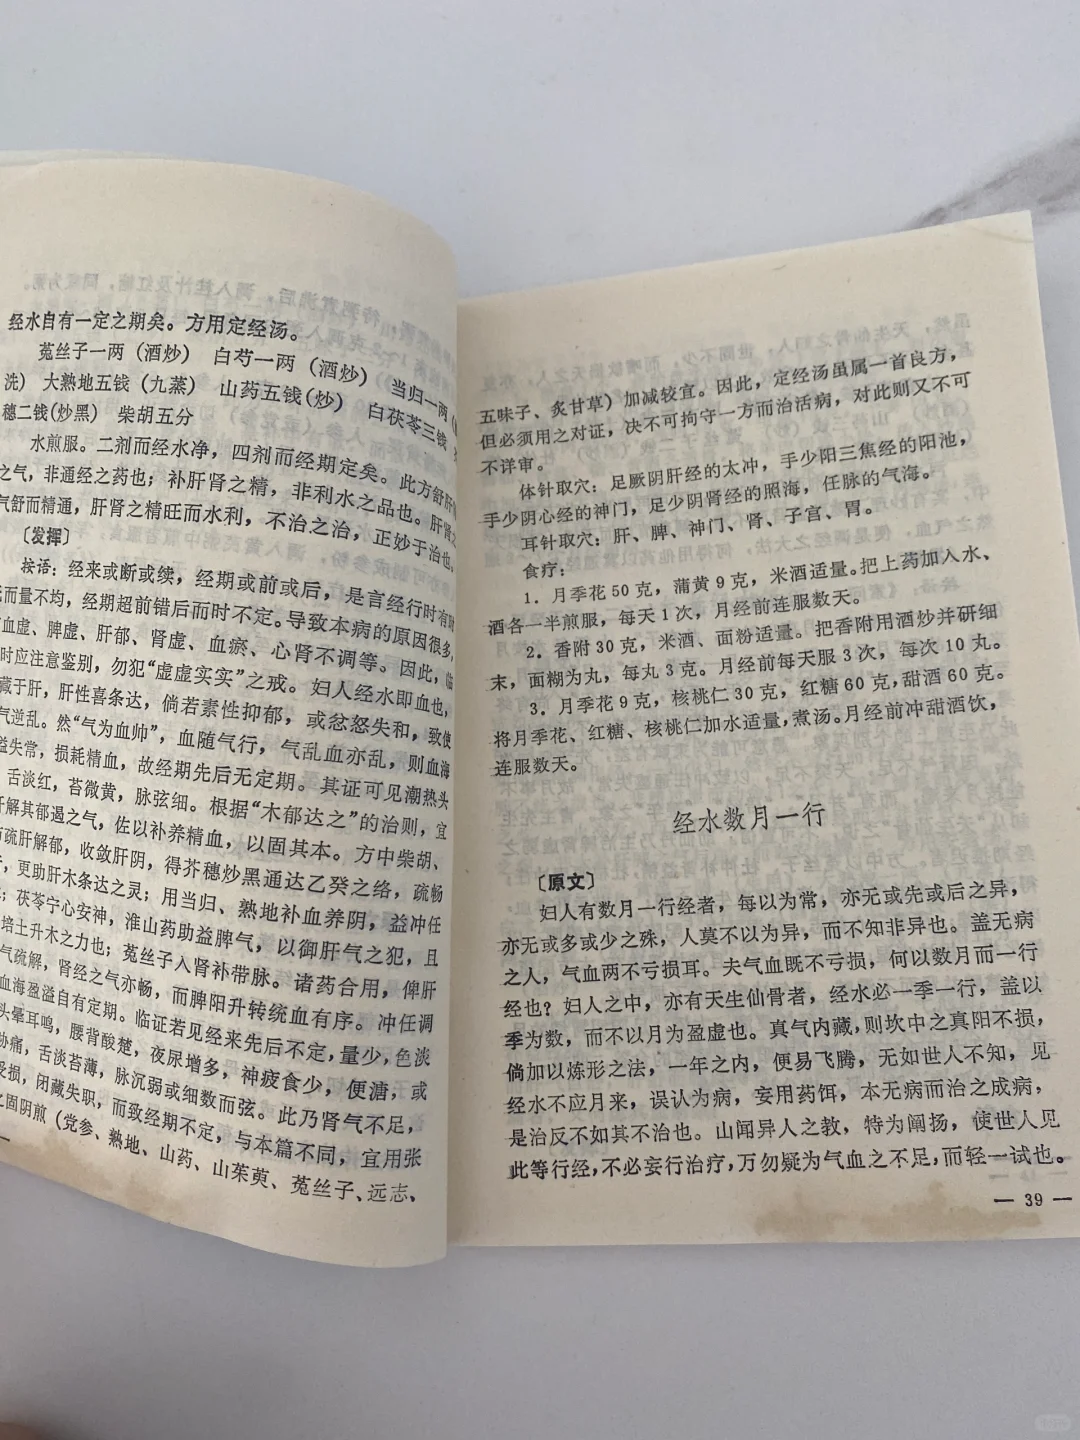 经水自有一定之期矣。方用定经汤。
菟丝子一两（酒炒） 白芍一两（酒炒） 当归一两（
洗） 大熟地五钱（九蒸） 山药五钱(炒) 白茯苓三钱
穗二钱(炒黑) 柴胡五分
水煎服。二剂而经水净，四剂而经期定矣。此方舒肝肾
之气，非通经之药也；补肝肾之精，非利水之品也。肝肾之
气舒而精通，肝肾之精旺而水利，不治之治，正妙于治也。
〔发挥〕
按语：经来或断或续，经期或前或后，是言经行时有时
而量不均，经期超前错后而时不定。导致本病的原因很多，
血虚、脾虚、肝郁、肾虚、血瘀、心肾不调等。因此，临
时应注意鉴别，勿犯“虚虚实实”之戒。妇人经水即血也，
藏于肝，肝性喜条达，倘若素性抑郁，或忿怒失和，致使
气逆乱。然“气为血帅”，血随气行，气乱血亦乱，则血海
溢失常，损耗精血，故经期先后无定期。其证可见潮热头
舌淡红，苔微黄，脉弦细。根据“木郁达之”的治则，宜
解其郁遏之气，佐以补养精血，以固其本。方中柴胡、
疏肝解郁，收敛肝阴，得芥穗炒黑通达乙癸之络，疏畅
，更助肝木条达之灵；用当归、熟地补血养阴，益冲任
；茯苓宁心安神，淮山药助益脾气，以御肝气之犯，且
培土升木之力也；菟丝子入肾补带脉。诸药合用，俾肝
气疏解，肾经之气亦畅，而脾阳升转统血有序。冲任调
血海盈溢自有定期。临证若见经来先后不定，量少，色淡
头晕耳鸣，腰背酸楚，夜尿增多，神疲食少，便溏，或
胁痛，舌淡苔薄，脉沉弱或细数而弦。此乃肾气不足，
受损，闭藏失职，而致经期不定，与本篇不同，宜用张
之固阴煎（党参、熟地、山药、山茱萸、菟丝子、远志、
五味子、炙甘草）加减较宜。因此，定经汤虽属一首良方，
但必须用之对证，决不可拘守一方而治活病，对此则又不可
不详审。
体针取穴：足厥阴肝经的太冲，手少阳三焦经的阳池，
手少阴心经的神门，足少阴肾经的照海，任脉的气海。
耳针取穴：肝、脾、神门、肾、子宫、胃。
食疗：
1．月季花50克，蒲黄9克，米酒适量。把上药加入水、
酒各一半煎服，每天1次，月经前连服数天。
2．香附30克，米酒、面粉适量。把香附用酒炒并研细
末，面糊为丸，每丸3克。月经前每天服3次，每次10丸。
3．月季花9克，核桃仁30克，红糖60克,甜酒60克。
将月季花、红糖、核桃仁加水适量,煮汤。月经前冲甜酒饮，
连服数天。
经水数月一行
〔原文〕
妇人有数月一行经者，每以为常，亦无或先或后之异，
亦无或多或少之殊，人莫不以为异，而不知非异也。盖无病
之人，气血两不亏损耳。夫气血既不亏损，何以数月而一行
经也？妇人之中，亦有天生仙骨者，经水必一季一行，盖以
季为数，而不以月为盈虚也。真气内藏,则坎中之真阳不损，
倘加以炼形之法，一年之内，便易飞腾，无如世人不知，见
经水不应月来，误认为病，妄用药饵，本无病而治之成病，
是治反不如其不治也。山闻异人之教，特为阐扬，使世人见
此等行经,不必妄行治疗,万勿疑为气血之不足,而轻一试也。
— 39 —